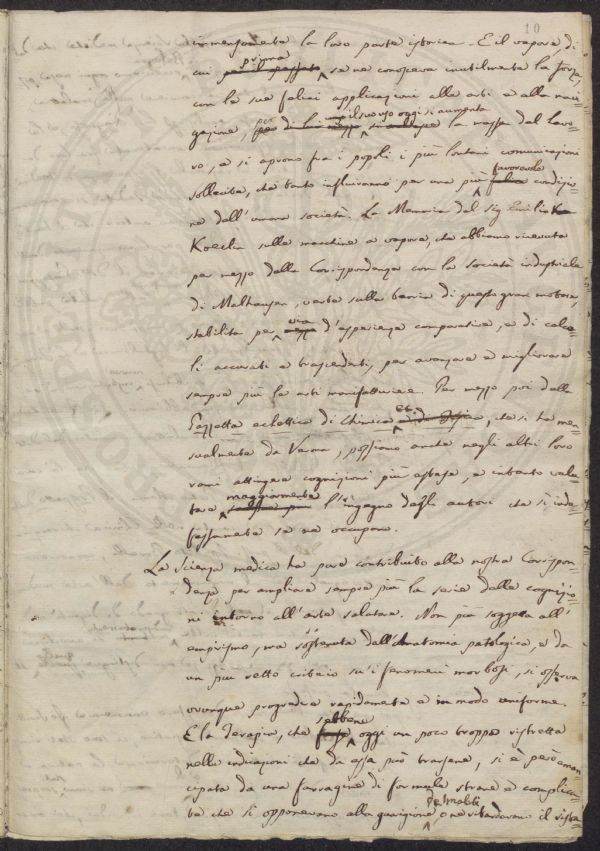 10
immensamente la loro parte istorica. E il vapore, di
prima
cui pel il passato se ne conosceva inutilmente la forza,
con le sue felici applicazioni alle arti e alla navi=
il suo uso oggi si aumenta
gazione, per di lui mezzo la massa del lavo=
ro, e si aprono fra i popoli i più lontani comunicazioni
favorevole
sollecite, che tanto influiranno per una più felice condizio=
ne dell'umana società. La Memoria del sig. Emilio
Koechlin sulle macchine a vapore, che abbiamo ricevuta
per mezzo della Corrispondenza con la società industriale
di Malhausen, verte sulla teoria di questo gran motore,
via
stabilita per mezzo d'esperienze comparative, e di calco=
li accurati e trascendenti, per avanzare e migliorare
sempre più le arti manifatturiere. Per mezzo poi della
ec.
Gazzetta eclettica di Chimica, che si ha men=
sualmente da Verona, possiamo anche negli altri loro
rami attingere cognizioni più estese, e intanto valu=
maggiormente
tare l'ingegno degli autori che sì inde=
fessamente se ne occupano.
La Scienza medica ha pure contribuito alla nostra Corrispon=
denza per ampliare sempre più la serie delle cognizio=
ni intorno all'arte salutare. Non più soggetta all'
empirismo, ma sostenuta dall'Anatomia patologica, e da
un più retto criterio su i fenomeni morbosi, si osserva
ovunque progredire rapidamente e in modo uniforme.
sebbene
E la Terapia, che forse oggi un poco troppo ristretta
nelle indicazioni che da essa può trarsene, si è però eman
cipata da una farragine di formule strane e complica=
de' malati
te che si opponevano alla guarigione, o ne ritardavano il rista=